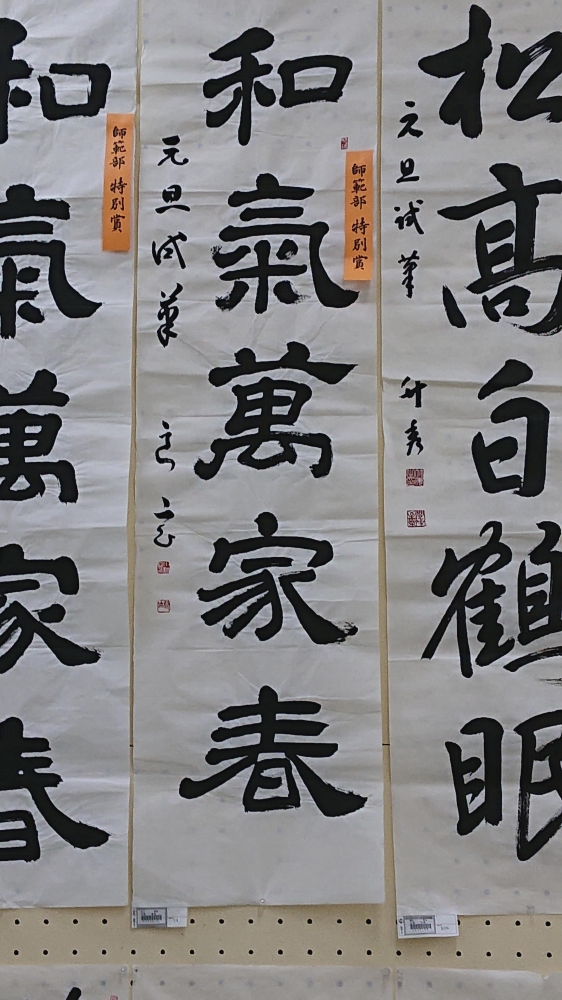 松高白鶴眠
元旦試筆
師範部 特別賞
和氣萬家春
元旦试筆
師範部 特別賞
和氣萬家春